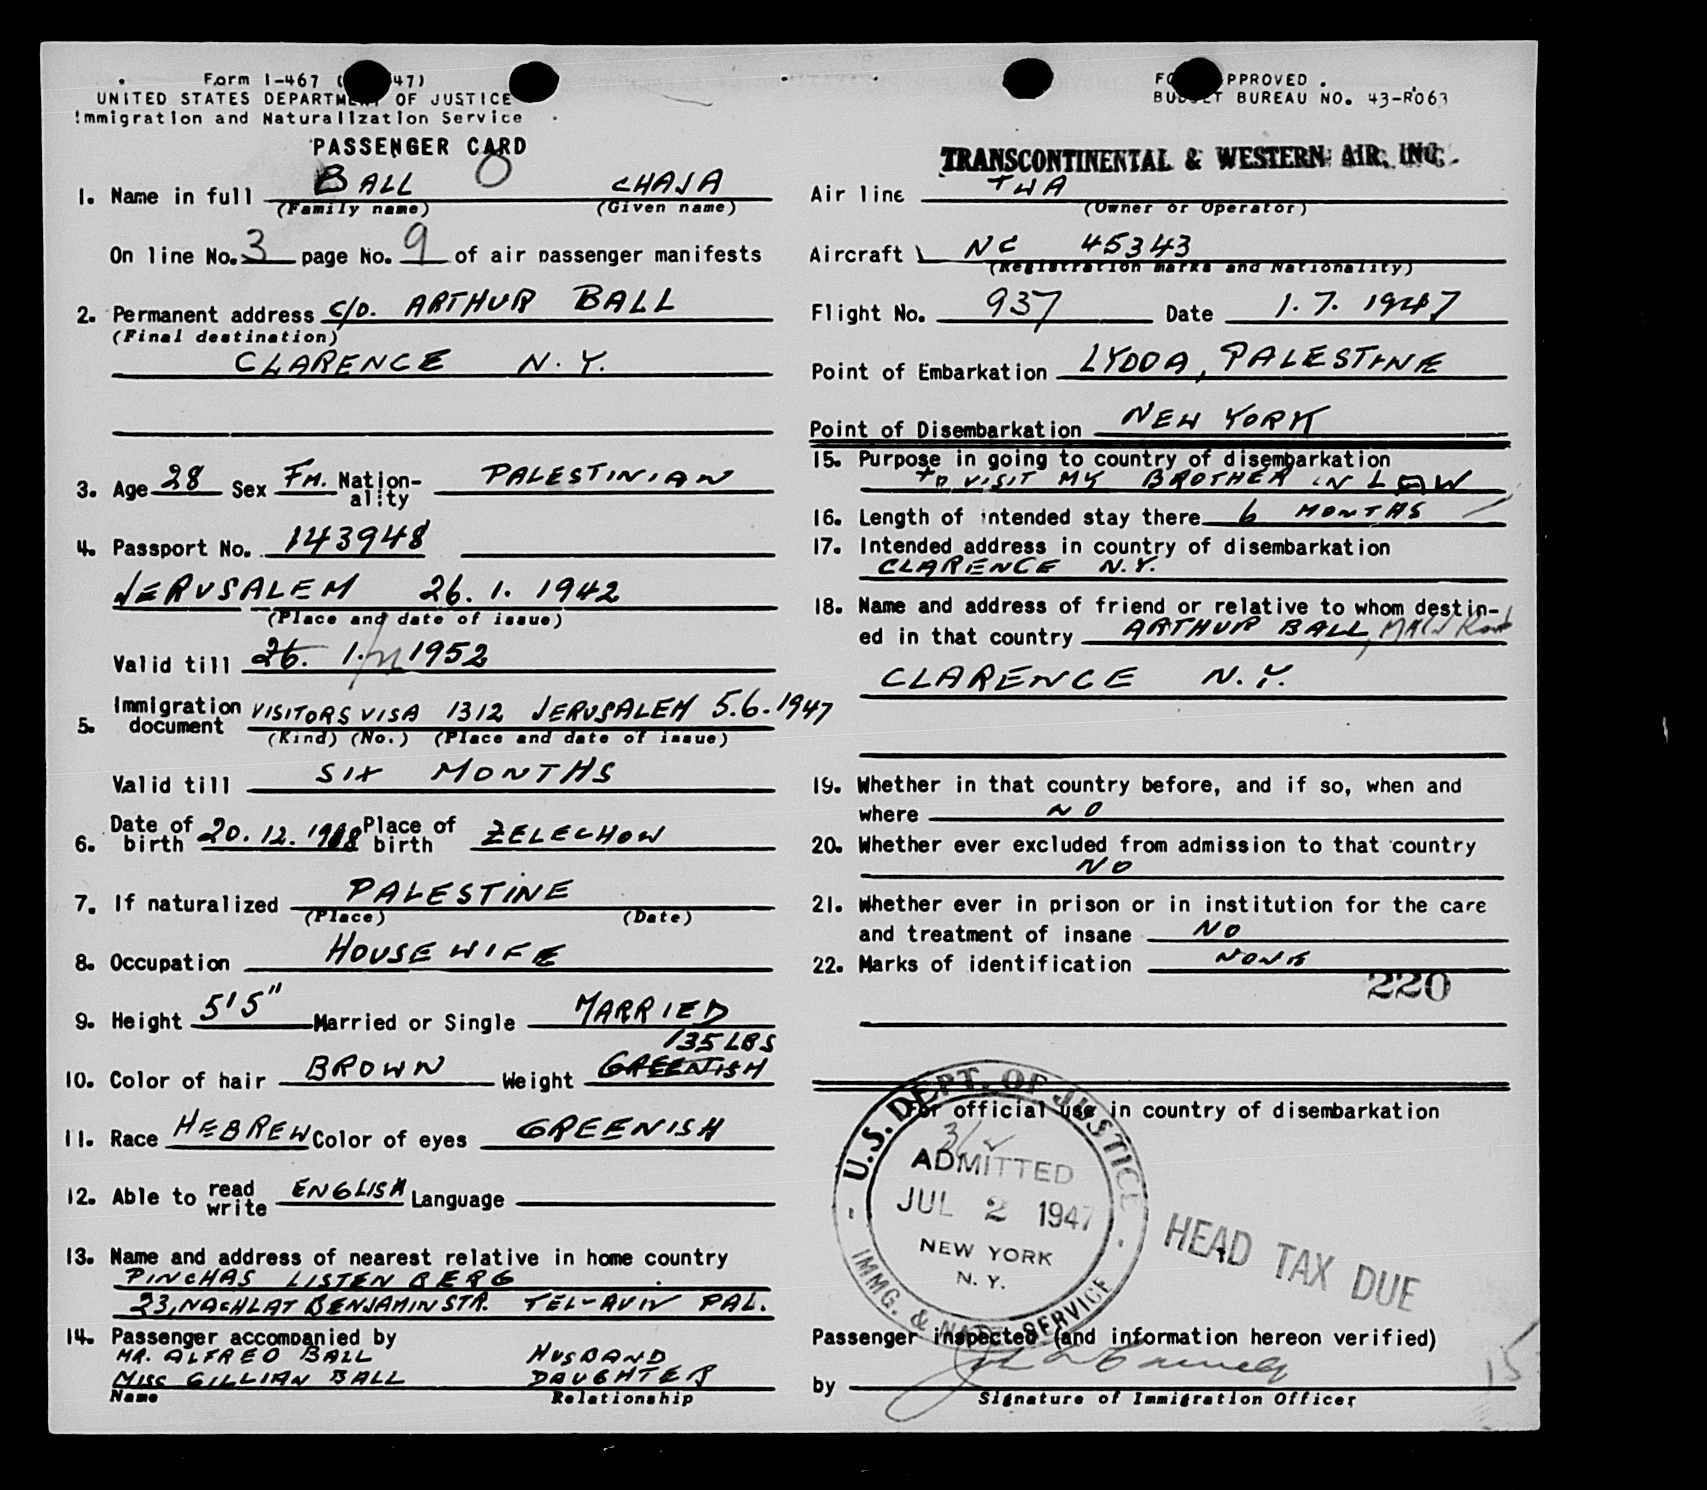 Form I-467 ( 47)
UNITED STATES DEPARTMENT OF JUSTICE
Immigration and Naturalization Service
PASSENGER CARD
1. Name in full BALL CHAJA
(Family name) (Given name)
On line No. 3 page No. 9 of air passenger manifests
2. Permanent address c/o. ARTHUR BALL
(Final destination)
CLARENCE N.Y.
3. Age 28 Sex FM. Nation-ality PALESTINIAN
4. Passport No. 143948
JERUSALEM 26. 1. 1942
(Place and date of issue)
Valid till 26. 1. 1952
5. Immigration document VISITORS VISA 1312 JERUSALEM 5.6.1947
(Kind) (No.) (Place and date of issue)
Valid till SIX MONTHS
6. Date of birth 20.12.1918 Place of birth ZELECHOW
7. If naturalized PALESTINE
(Place) (Date)
8. Occupation HOUSEWIFE
9. Height 5'5" Married or Single MARRIED
135 LBS
10. Color of hair BROWN Weight GREENISH
11. Race HEBREW Color of eyes GREENISH
12. Able to read write ENGLISH Language
13. Name and address of nearest relative in home country
PINCHAS LISTENBERG
23, NACHLAT BENJAMIN STR. TEL-AVIV PAL.
14. Passenger accompanied by
MR. ALFRED BALL HUSBAND
MISS GILLIAN BALL DAUGHTER
Name Relationship
FORM APPROVED.
BUDGET BUREAU NO. 43-R063
TRANSCONTINENTAL & WESTERN AIR, INC.
Air line TWA
(Owner or Operator)
Aircraft NC 45343
(Registration marks and Nationality)
Flight No. 937 Date 1.7.1947
Point of Embarkation LYDDA, PALESTINE
Point of Disembarkation NEW YORK
15. Purpose in going to country of disembarkation
TO VISIT MY BROTHER IN LAW
16. Length of intended stay there 6 MONTHS
17. Intended address in country of disembarkation
CLARENCE N.Y.
18. Name and address of friend or relative to whom destin-
ed in that country ARTHUR BALL, MAIN Road
CLARENCE N.Y.
19. Whether in that country before, and if so, when and
where NO
20. Whether ever excluded from admission to that country
NO
21. Whether ever in prison or in institution for the care
and treatment of insane NO
22. Marks of identification NONE
220
For official use in country of disembarkation
U.S. DEPT. OF JUSTICE
3/2
ADMITTED
JUL 2 1947
NEW YORK
N. Y.
IMMG. & NAT. SERVICE
HEAD TAX DUE
Passenger inspected (and information hereon verified)
by
Signature of Immigration Officer
15